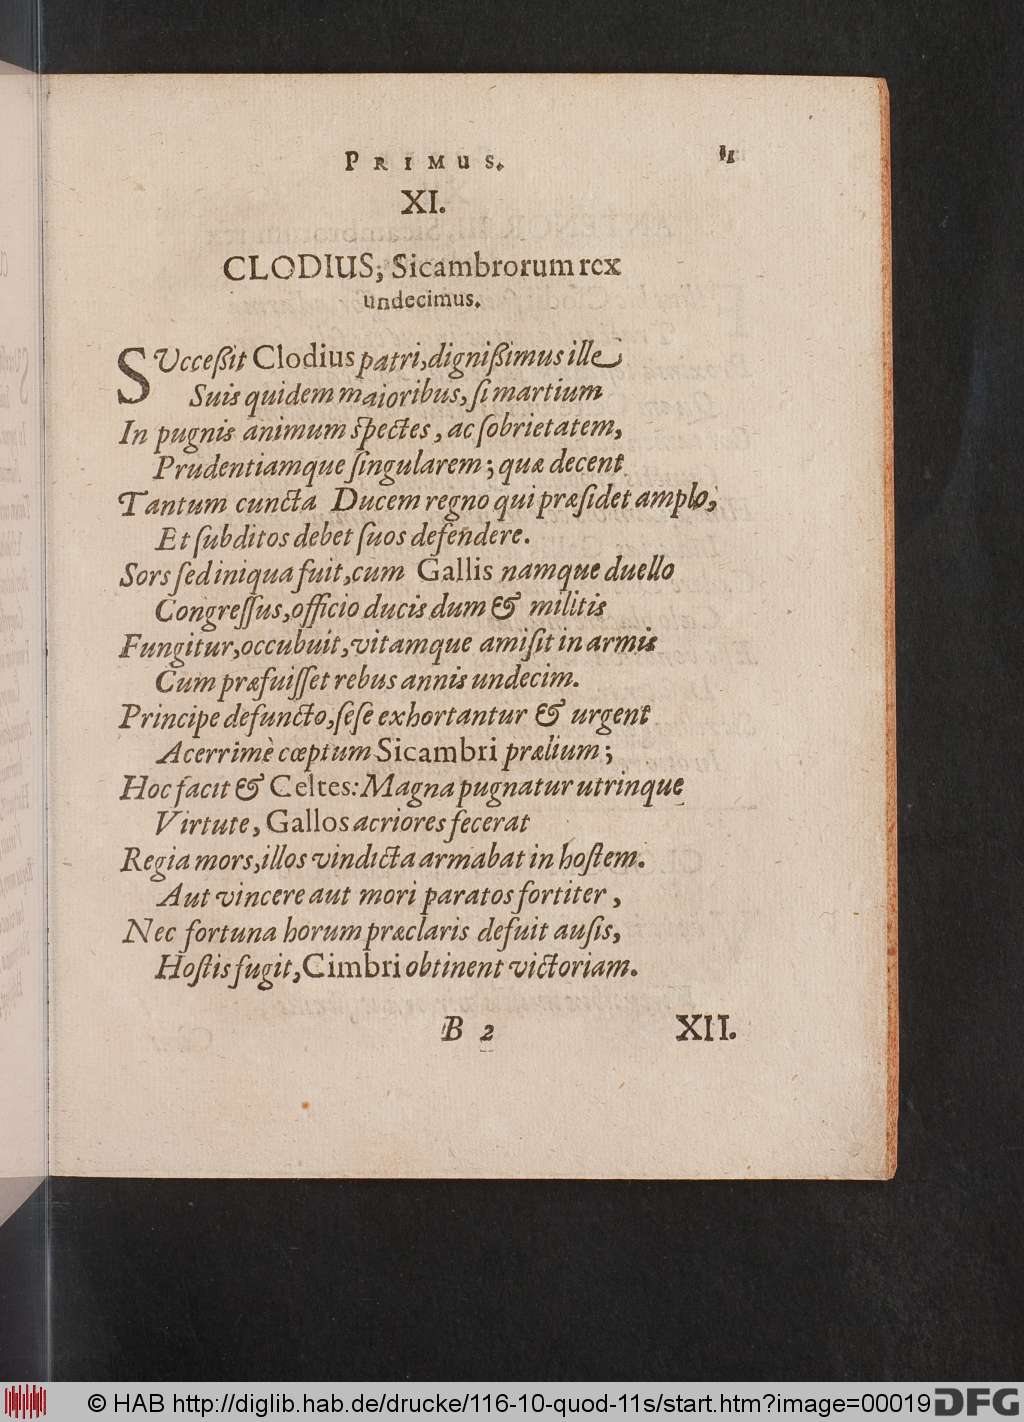 PRIMUS.
XI.
CLODIUS, Sicambrorum rex
undecimus.
SUcceßit Clodius patri, dignißimus ille
Suis quidem maioribus, ſi martium
In pugnis animum ſpectes, ac ſobrietatem,
Prudentiamque ſingularem; quæ decent
Tantum cuncta Ducem regno qui præſidet amplo,
Et ſubditos debet ſuos defendere.
Sors ſed iniqua fuit, cum Gallis namque duello
Congreſſus, officio ducis dum & militis
Fungitur, occubuit, vitamque amiſit in armis
Cum præfuiſſet rebus annis undecim.
Principe defuncto, ſeſe exhortantur & urgent
Acerrimè cœptum Sicambri prælium;
Hoc facit & Celtes: Magna pugnatur utrinque
Virtute, Gallos acriores fecerat
Regia mors, illos vindicta armabat in hoſtem.
Aut vincere aut mori paratos fortiter,
Nec fortuna horum præclaris defuit auſis,
Hoſtis fugit, Cimbri obtinent victoriam.
B 2 XII.
© HAB http://diglib.hab.de/drucke/116-10-quod-11s/start.htm?image=00019
DFG